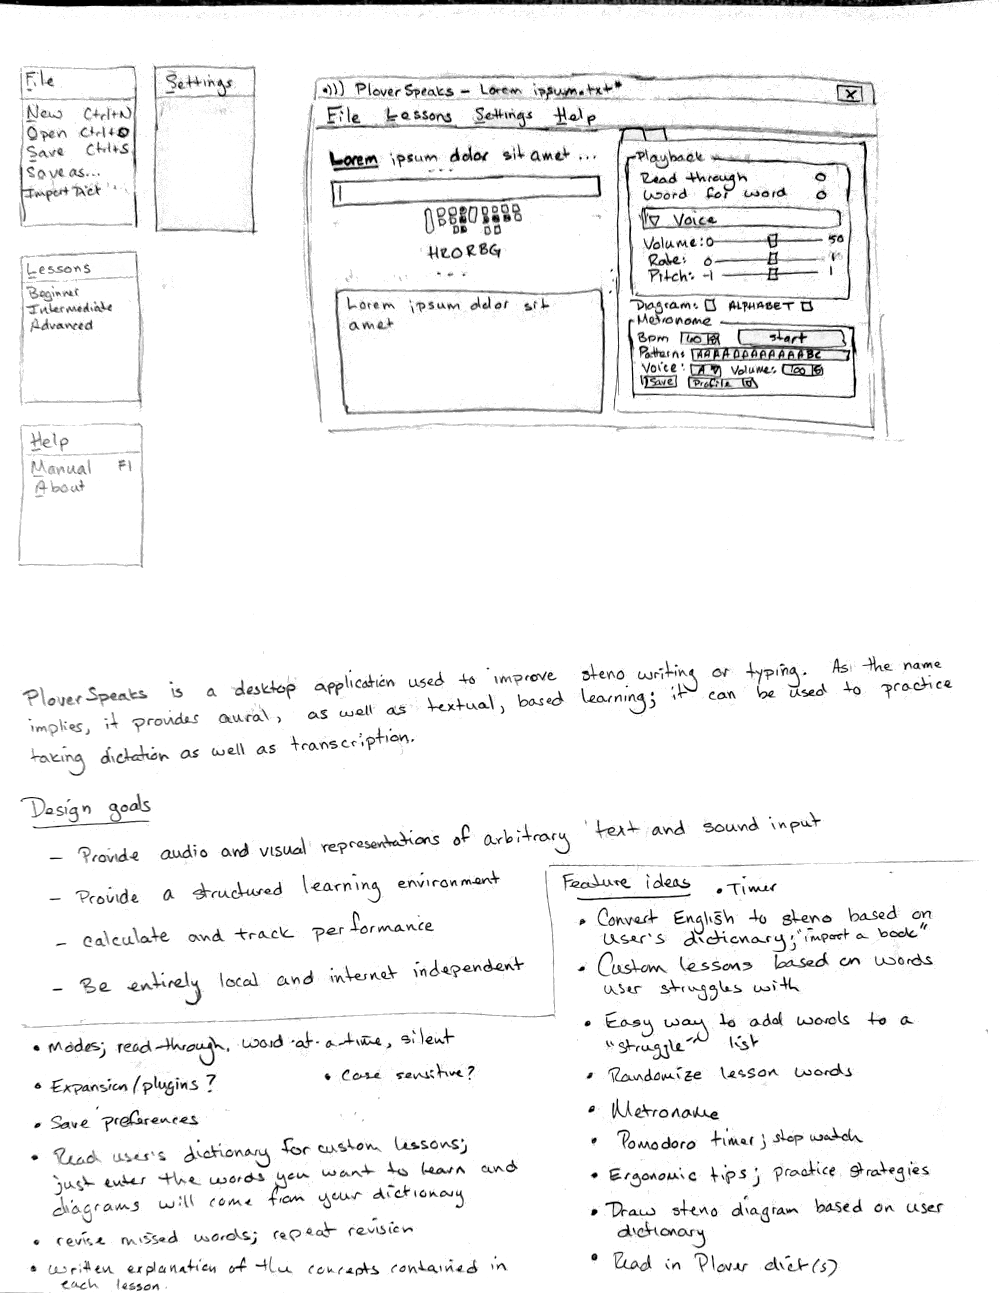 File
New Ctrl+N
Open Ctrl+O
Save Ctrl+S
Save as...
Import Dict
Settings
Lessons
Beginner
Intermediate
Advanced
Help
Manual F1
About
•))) PloverSpeaks - Lorem ipsum.txt* X
File Lessons Settings Help
Lorem ipsum dolor sit amet ...
...
HRORBG
...
Lorem ipsum dolor sit
amet
Playback
Read through
Word for word
▽ Voice
Volume: 0 50
Rate: 0 1
Pitch: -1 1
Diagram: ALPHABET
Metronome
Bpm 60 start
Pattern: AAAAAAAAAAAABC
Voice: A ▽ Volume: 100
Save Profile ▽
PloverSpeaks is a desktop application used to improve steno writing or typing. As the name
implies, it provides aural, as well as textual, based learning; it can be used to practice
taking dictation as well as transcription.
Design goals
- Provide audio and visual representations of arbitrary text and sound input
- Provide a structured learning environment
- calculate and track performance
- Be entirely local and internet independent
• Modes; read-through, word-at-a-time, silent
• Expansion/plugins? • Case sensitive?
• Save preferences
• Read user's dictionary for custom lessons;
just enter the words you want to learn and
diagrams will come from your dictionary
• revise missed words; repeat revision
• written explanation of the concepts contained in
each lesson.
Feature ideas • Timer
• Convert English to steno based on
user's dictionary; "import a book"
• Custom lessons based on words
user struggles with
• Easy way to add words to a
"struggle" list
• Randomize lesson words
• Metronome
• Pomodoro timer; stop watch
• Ergonomic tips; practice strategies
• Draw steno diagram based on user
dictionary
• Read in Plover dict(s)